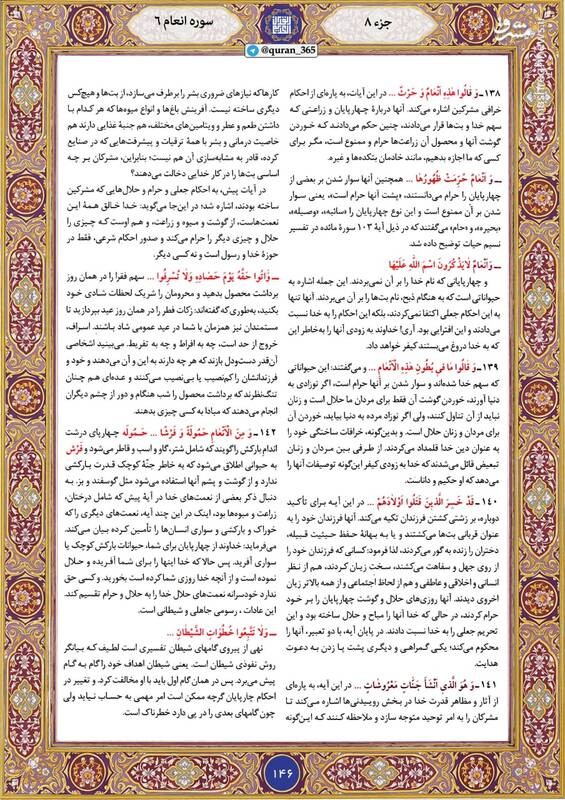 جزء ۸
سوره انعام ۶
@quran_365
۱۳۸ـ وَ قَالُوا هَذِهِ أَنْعَامٌ وَ حَرْثٌ ... در این آیات، به پاره‌ای از احکام
خرافی مشرکین اشاره می‌کند. آنها دربارهٔ چهارپایان و زراعتی که
سهم خدا و بت‌ها قرار می‌دادند، چنین حکم می‌دادند کـه خوردن
گوشت آنها و محصول آن زراعت‌ها حرام و ممنوع است، مگر برای
کسی که ما اجازه بدهیم، مانند خادمان بتکده‌ها و غیره.
ـــ وَ أَنْعَامٌ حُرِّمَتْ ظُهُورُهَا ... همچنین آنها سوار شدن بر بعضی از
چهارپایان را حرام می‌دانستند، «پشت آنها حرام است»، یعنی سوار
شدن بر آن ممنوع است و این نوع چهارپایان را «سائبه»، «وصیله»،
«بحیره»، و «حام» می‌گفتند که در ذیل آیهٔ ۱۰۳ سورهٔ مائده در تفسیر
نسیم حیات توضیح داده شد.
ـــ وَ أَنْعَامٌ لَا يَذْكُرُونَ اسْمَ اللَّهِ عَلَيْهَا
و چهارپایانی که نام خدا را بر آن نمی‌بردند. این جمله اشاره به
حیواناتی است که به هنگام ذبح، نام بت‌ها را بر آن می‌بردند. آنها تنها
به این احکام جعلی اکتفا نمی‌کردند، بلکه این احکام را به خدا نسبت
می‌دادند و این افترایی بود. آری! خداوند به زودی آنها را به‌خاطر این
که به خدا دروغ می‌بستند کیفر خواهد داد.
۱۳۹ـ وَ قَالُوا مَا فِي بُطُونِ هَذِهِ الْأَنْعَامِ ... و می‌گفتند: این حیواناتی
که سهم خدا شده‌اند و سوار شدن بر آنها حرام است، اگر نوزادی به
دنیا آورند، خوردن گوشت آن فقط برای مردان ما حلال است و زنان
نباید از آن تناول کنند، ولی اگر نوزاد مرده به دنیا بیاید، خوردن آن
برای مردان و زنان حلال است. و بدین‌گونه، خرافات ساختگی خود را
به عنوان دین خدا قلمداد می‌کردند. از طرفی بین مردان و زنـان
تبعیض قائل می‌شدندکه خدا به زودی کیفر این‌گونه توصیفات آنها را
می‌دهد که او حکیم و داناست.
۱۴۰ـ قَدْ خَسِرَ الَّذِينَ قَتَلُوا أَوْلَادَهُمْ ... در این آیـه برای تأکید
دوباره، بر زشتی کشتن فرزندان تکیه می‌کند. آنها فرزندان خود را به
عنوان قربانی بت‌ها می‌کشتند و یا به بهانهٔ حفظ حیثیت قبیله،
دختران را زنده به گور می‌کردند، لذا فرمود: کسانی که فرزندان خود را
از روی جهل و سفاهت می‌کشند، سخت زیان کردند، هم از نظر
انسانی و اخلاقی و عاطفی و هم از لحاظ اجتماعی و از همه بالاتر زیان
اخروی دیدند. آنها روزی‌های حلال و گوشت چهارپایان را بر خود
حرام کردند، در حالی که خدا آنها را مباح و حلال ساخته بود و این
تحریم جعلی را به خدا نسبت دادند. در پایان آیه، با دو تعبیر، آنها را
محکوم می‌کند؛ یکی گمراهی و دیگری پشت پا زدن به دعوت
هدایت.
۱۴۱ـ وَ هُوَ الَّذِي أَنْشَأَ جَنَّاتٍ مَعْرُوشَاتٍ ... در این آیه، به پاره‌ای
از آثار و مظاهر قدرت خدا در بخش روییدنی‌ها اشاره می‌کند تا
مشرکان را به امر توحید متوجه سازد و ملاحظه کنند که این‌گونه
کارها که نیازهای ضروری بشر را برطرف می‌سازد، از بت‌ها و هیچ‌کس
دیگری ساخته نیست. آفرینش باغ‌ها و انواع میوه‌ها که هر کدام با
داشتن طعم و عطر و ویتامین‌های مختلف، هم جنبهٔ غذایی دارند هم
خاصیت درمانی و بشر با همهٔ ترقیات و پیشرفت‌هایی که در صنایع
کرده، قادر به مشابه‌سازی آن هم نیست؛ بنابراین، مشرکان بر چه
اساسی بت‌ها را در کار خدایی دخالت می‌دهند؟
در آیات پیش، به احکام جعلی و حرام و حلال‌هایی که مشرکین
ساخته بودند، اشاره شد؛ در این‌جا می‌گوید: خدا خالق همهٔ این
نعمت‌هاست، از گوشت و میوه و زراعت، و هم اوست که چیزی را
حلال و چیزی دیگر را حرام می‌کند و صدور احکام شرعی، فقط در
حوزهٔ خدا و رسول است و نه کسی دیگر.
ـــ وَ آتُوا حَقَّهُ يَوْمَ حَصَادِهِ وَ لَا تُسْرِفُوا ... سهم فقرا را در همان روز
برداشت محصول بدهید و محرومان را شریک لحظات شادی خـود
بکنید، به‌طوری که گفته‌اند: زکات فطر را در همان روز عید بپردازید تا
مستمندان نیز همزمان با شما در عید عمومی شاد باشند. اسراف،
خروج از حد است، چه به افراط و چه به تفریط. می‌بینید اشخاصی
آن‌قدر دست‌ودل بازند که هر چه دارند به این و آن می‌دهند و خود و
فرزندانشان را کم‌نصیب یا بی‌نصیب می‌کنند و عده‌ای هم چنان
تنگ‌نظرند که برداشت محصول را شب هنگام و دور از چشم دیگران
انجام می‌دهند که مبادا به کسی چیزی بدهند.
۱۴۲ـ وَ مِنَ الْأَنْعَامِ حَمُولَةً وَ فَرْشًا ... حَمُوله چهارپای درشت
اندام بارکش را گویند که شامل شتر، گاو و اسب و قاطر می‌شود و فَرْش
به حیوانی اطلاق می‌شود که به خاطر جثّهٔ کوچک قدرت بارکشی
ندارد و از گوشت و پشم آنها استفاده می‌شود مثل گوسفند و بز. به
دنبال ذکر بعضی از نعمت‌های خدا در آیهٔ پیش که شامل درختان،
زراعت و میوه‌ها بود، اینک در این چند آیه، نعمت‌های دیگری را که
خوراک و بارکشی و سواری انسان‌ها را تأمین کرده بیان می‌کند.
می‌فرماید: خداوند از چهارپایان برای شما، حیوانات بارکش کوچک یا
سواری آفرید. پس حالا که خدا اینها را برای شما آفریده و حلال
نموده است و از آنچه خدا روزی شما کرده است بخورید. و کسی حق
ندارد خودسرانه نعمت‌های حلال خدا را به حلال و حرام تقسیم کند.
این عادات، رسومی جاهلی و شیطانی است.
ـــ وَ لَا تَتَّبِعُوا خُطُوَاتِ الشَّيْطَانِ ...
نهی از پیروی گام‌های شیطان تفسیری است لطیف کـه بیانگر
روش نفوذی شیطان است. یعنی شیطان اهداف خود را گام به گـام
پیش می‌برد. پس در همان گام اول باید با او مخالفت کرد. و تغییر در
احکام چارپایان گرچه ممکن است امر مهمی به حساب نیاید ولی
چون گام‌های بعدی را در پی دارد خطرناک است.
۱۴۶